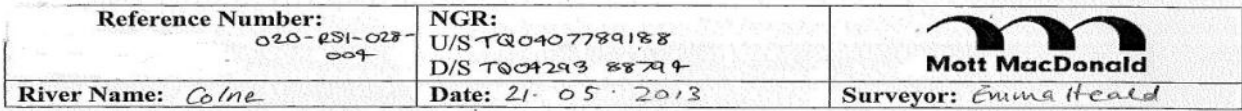 Reference Number:
020-RS1-028-
004
NGR:
U/S TQ0407789188
D/S TQ04293 88794
Mott MacDonald
River Name: Colne
Date: 21. 05. 2013
Surveyor: Emma Heald